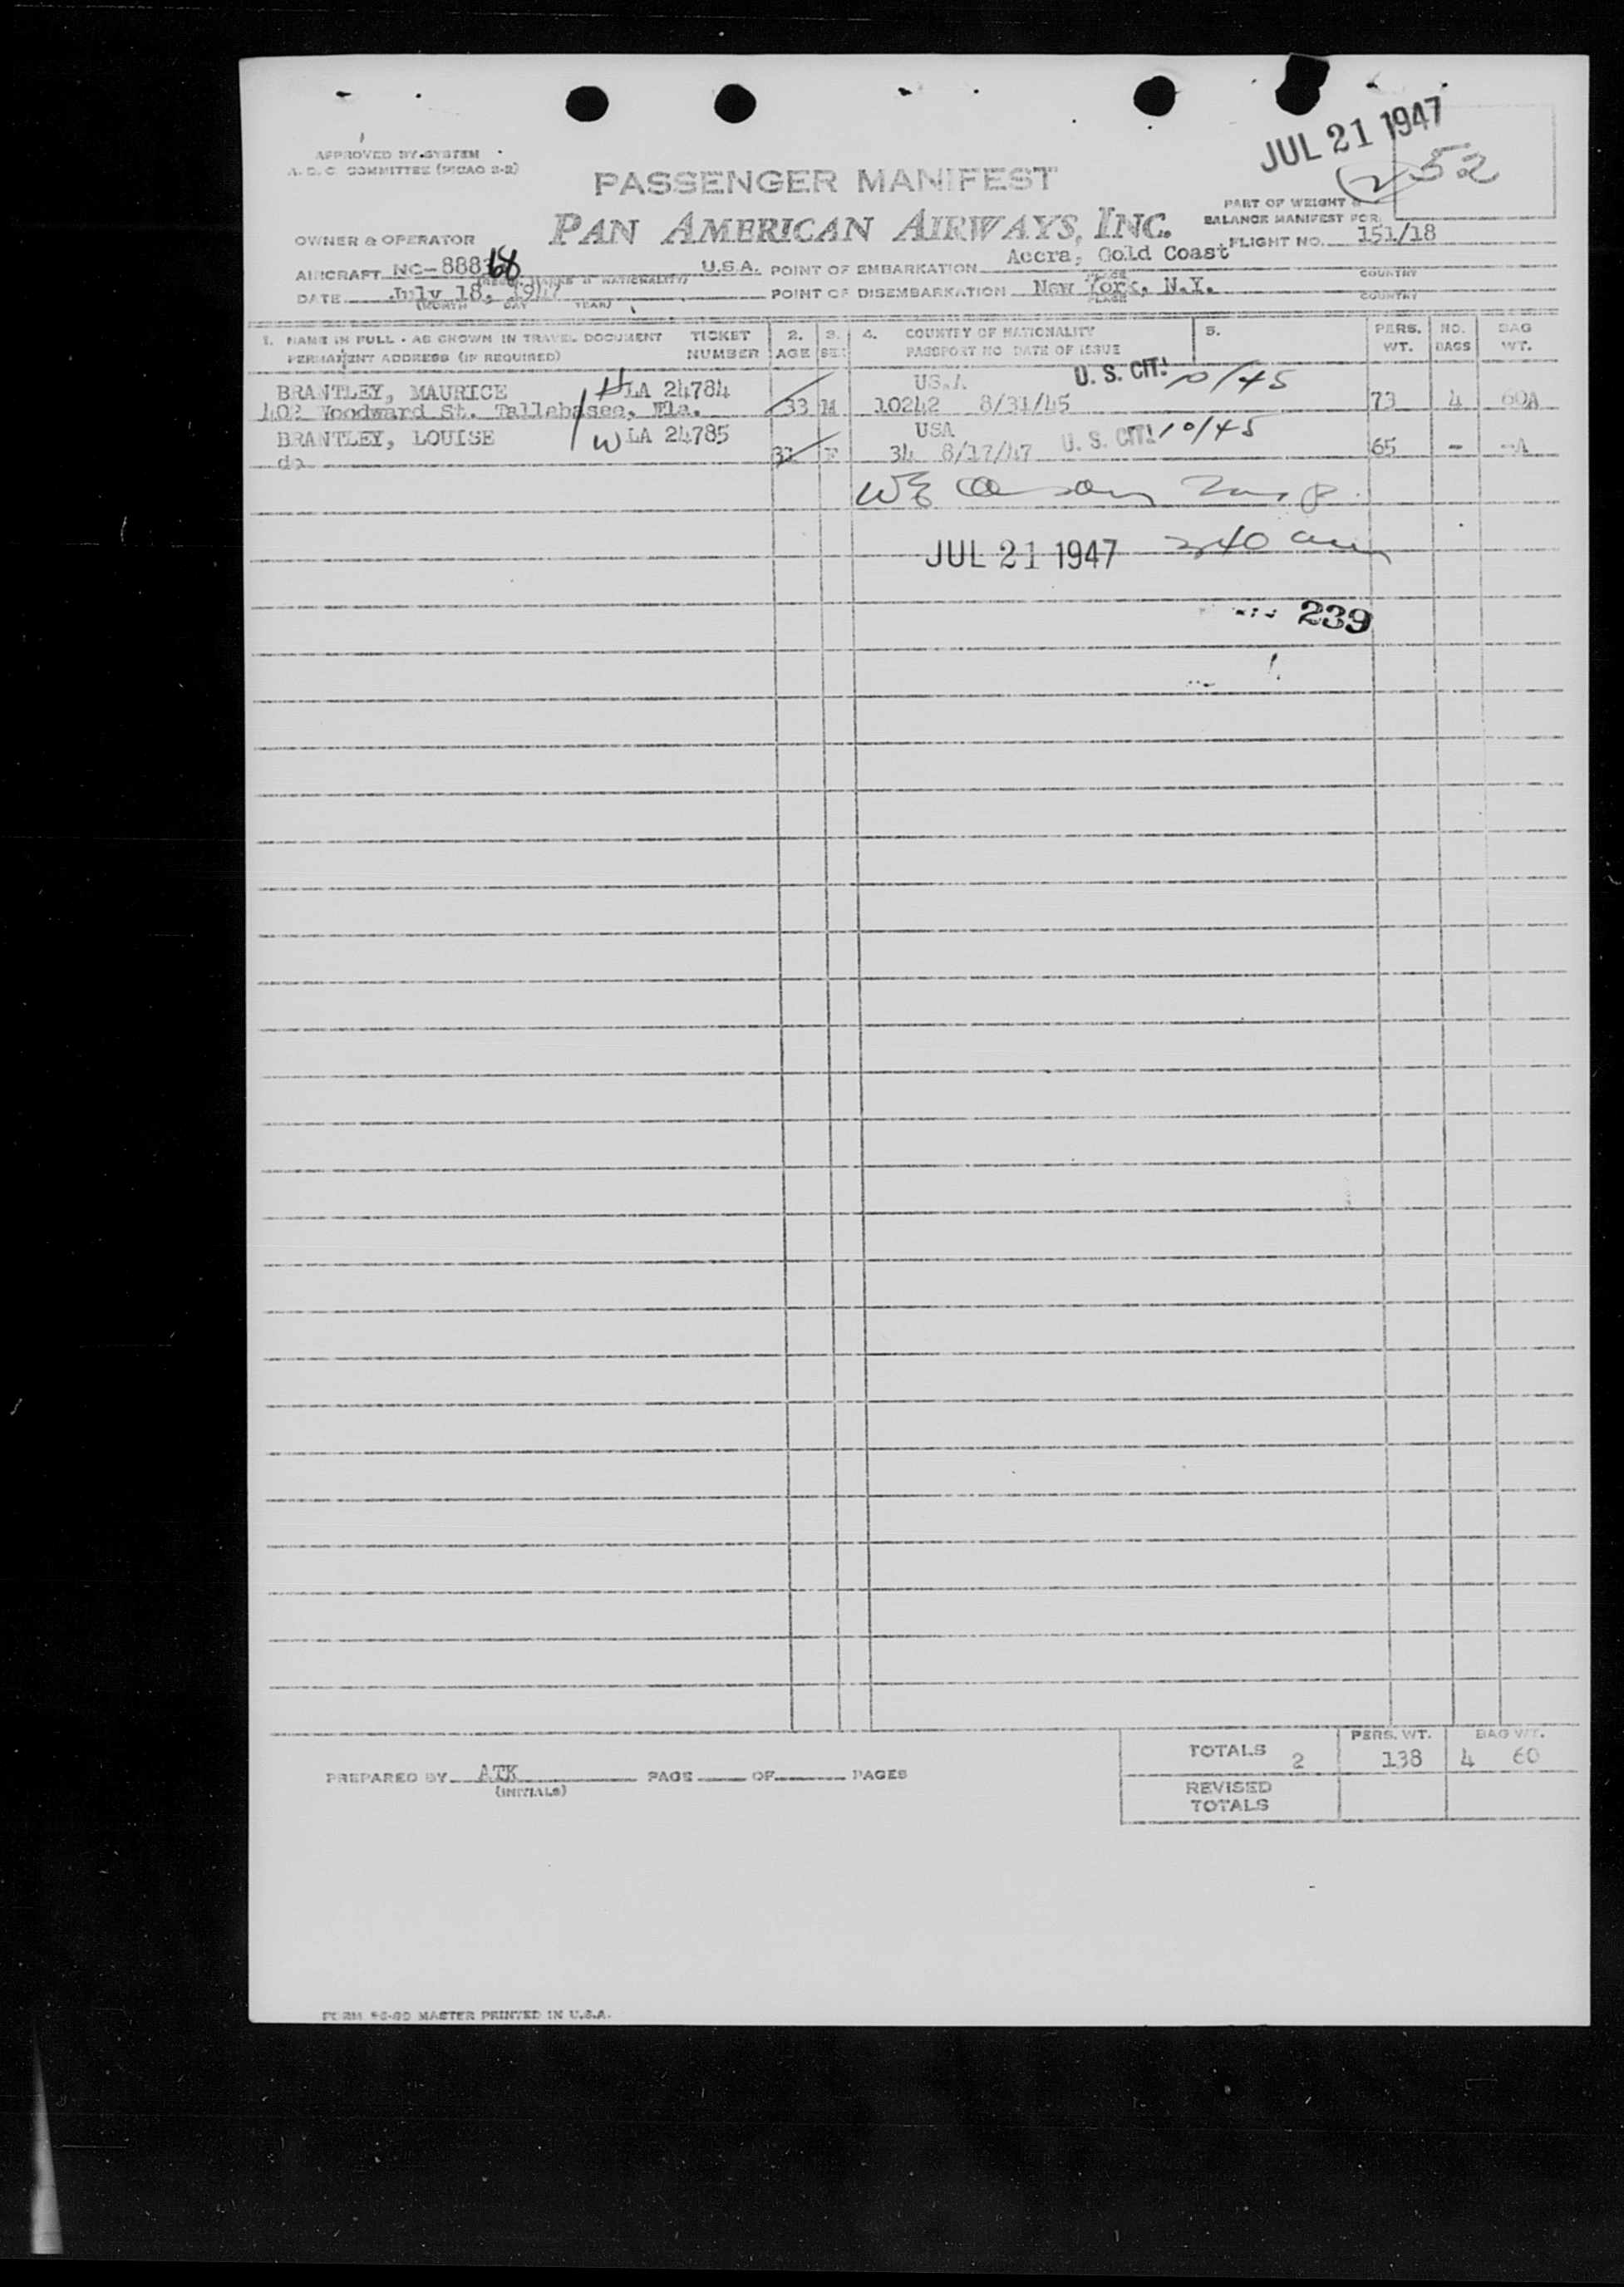 JUL 21 1947
52
APPROVED BY SYSTEM
A.D.C. COMMITTEE (PICAO 2-2)
PASSENGER MANIFEST
PART OF WEIGHT &
BALANCE MANIFEST FOR
OWNER & OPERATOR PAN AMERICAN AIRWAYS, INC. FLIGHT NO. 151/18
AIRCRAFT NC-88868 U.S.A. POINT OF EMBARKATION Accra, Gold Coast
PLACE COUNTRY
DATE July 18, 1947 POINT OF DISEMBARKATION New York, N.Y.
(MONTH DAY YEAR) PLACE COUNTRY
1. NAME IN FULL - AS SHOWN IN TRAVEL DOCUMENT TICKET 2. 3. 4. COUNTRY OF NATIONALITY 5. PERS. NO. BAG
PERMANENT ADDRESS (IF REQUIRED) NUMBER AGE SEX PASSPORT NO DATE OF ISSUE WT. BAGS WT.
BRANTLEY, MAURICE H LA 24784 USA U. S. CIT! 10/45
402 Woodward St. Tallehasee, Fla. 33 M 10242 8/31/45 73 4 60A
BRANTLEY, LOUISE W LA 24785 USA U. S. CIT! 10/45
do 33 F 34 8/17/47 65 - -A
JUL 21 1947 240 am
239
TOTALS 2 PERS. WT. 138 BAG WT. 4 60
PREPARED BY ATK PAGE OF PAGES
(INITIALS)
REVISED
TOTALS
MASTER PRINTED IN U.S.A.